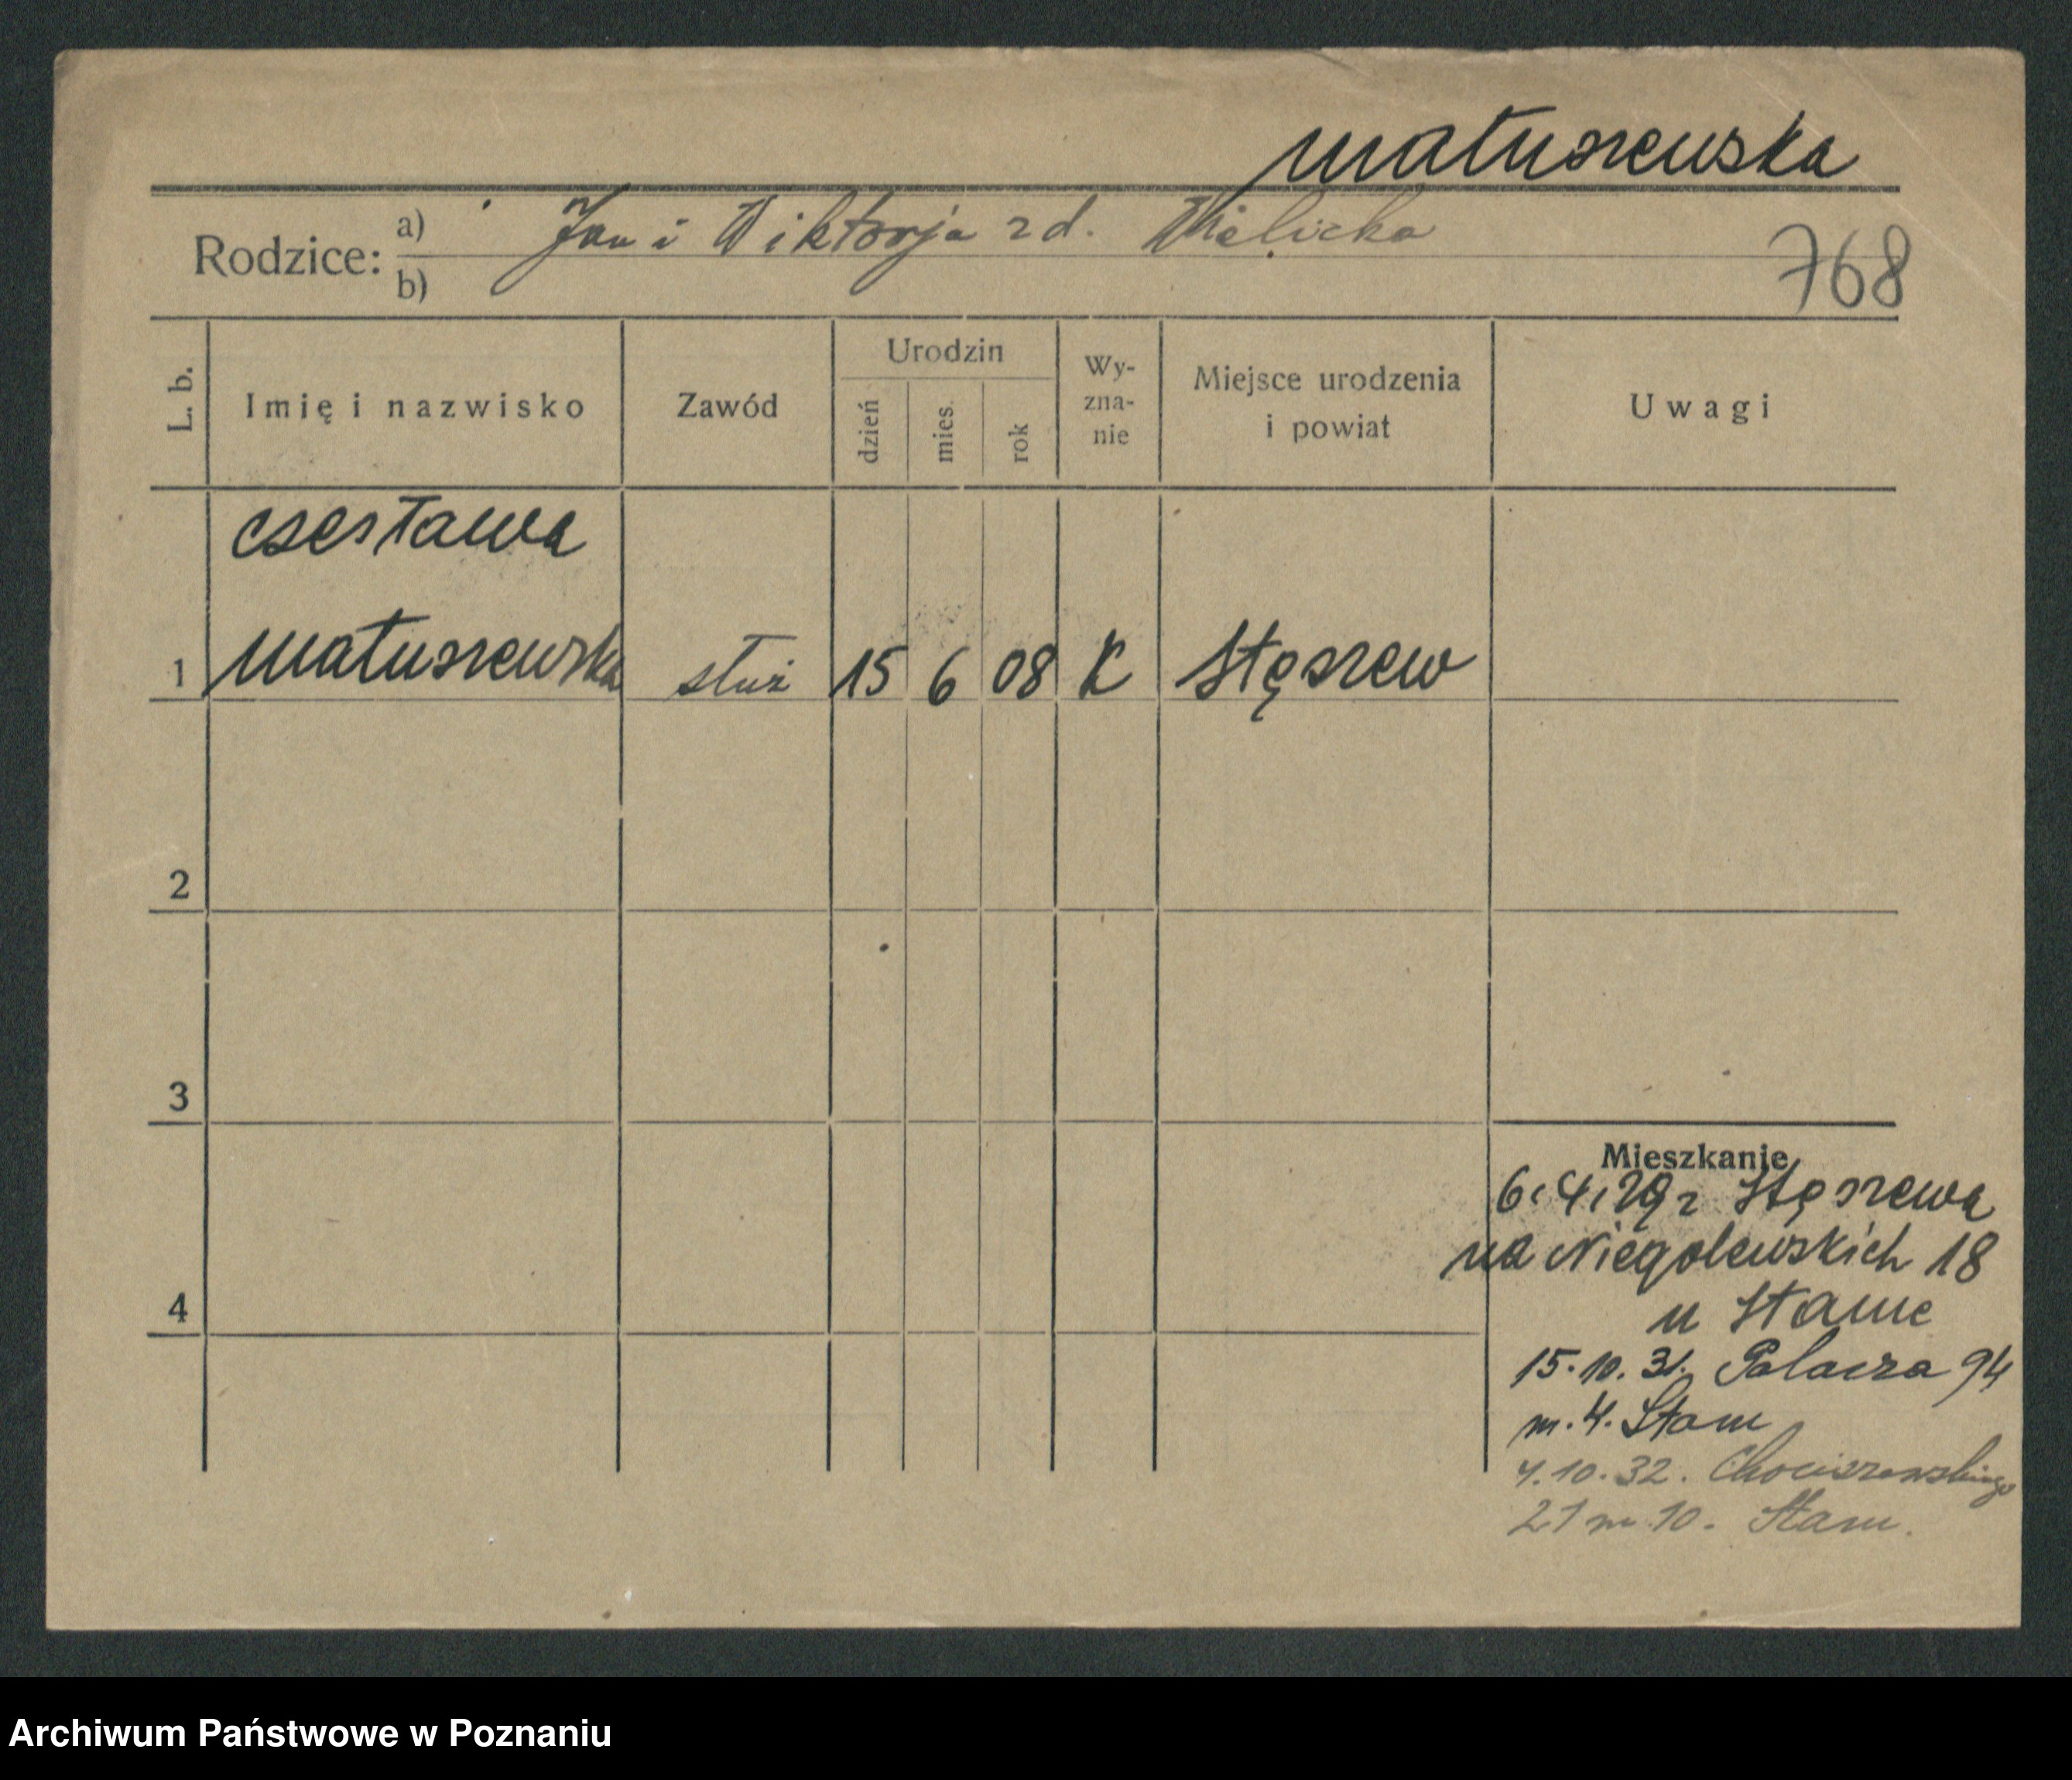 Matuszewska
Rodzice: a) Jan i Wiktorja zd. Mielicka
b)
768
L. b.
Imię i nazwisko
Zawód
Urodzin
dzień
mies.
rok
Wy-
zna-
nie
Miejsce urodzenia
i powiat
Uwagi
Czesława
1 Matuszewska służ 15 6 08 K Stęszew
2
3
4
Mieszkanie
6.4.29 z Stęszewa
na Niegolewskich 18
u Stamę
15.10.31. Palacza 94
m. 4. Stam
4.10.32. Chociszewskiego
21 m. 10. Stam.
Archiwum Państwowe w Poznaniu